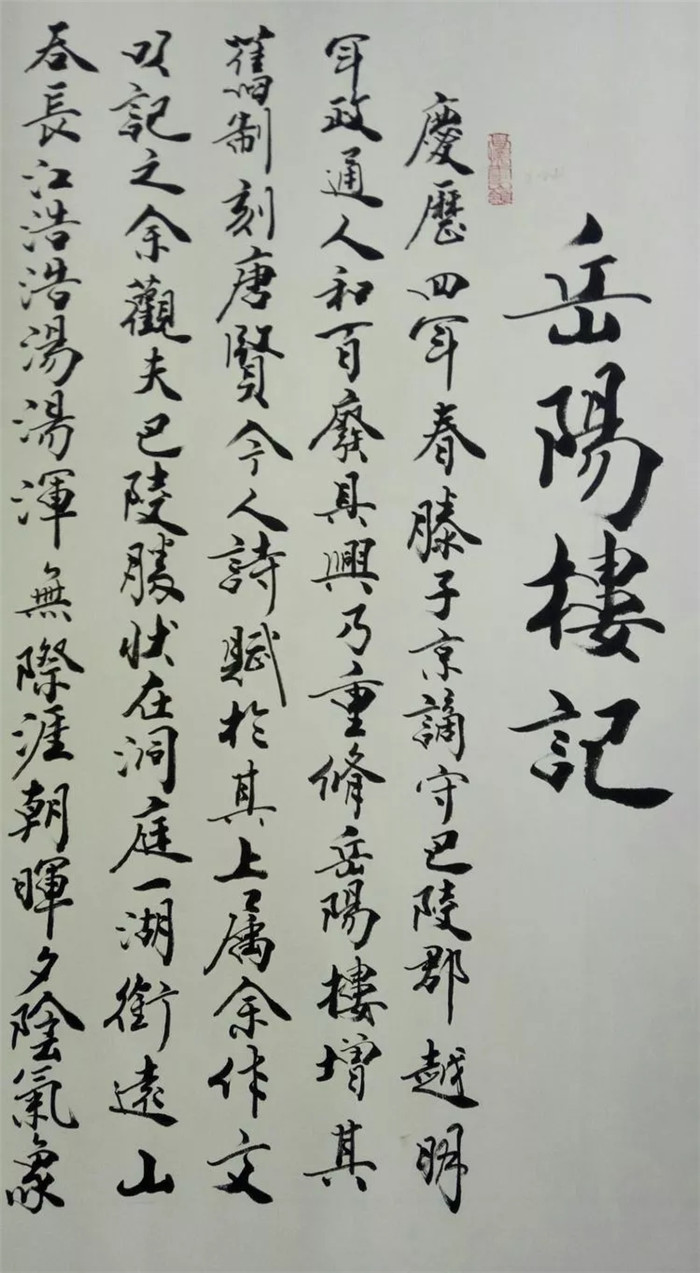 岳陽樓記
慶曆四年春滕子京謫守巴陵郡越明
年政通人和百廢具興乃重脩岳陽樓增其
舊制刻唐賢今人詩賦於其上属余作文
以記之余觀夫巴陵勝狀在洞庭一湖銜遠山
吞長江浩浩湯湯渾無際涯朝暉夕陰氣象